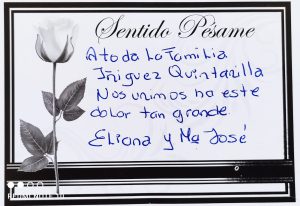 Sentido Pésame
A toda La Familia
Iñiguez Quintanilla
Nos unimos ha este
dolor tan grande.
Eliana y Mª José
REDMI NOTE 10